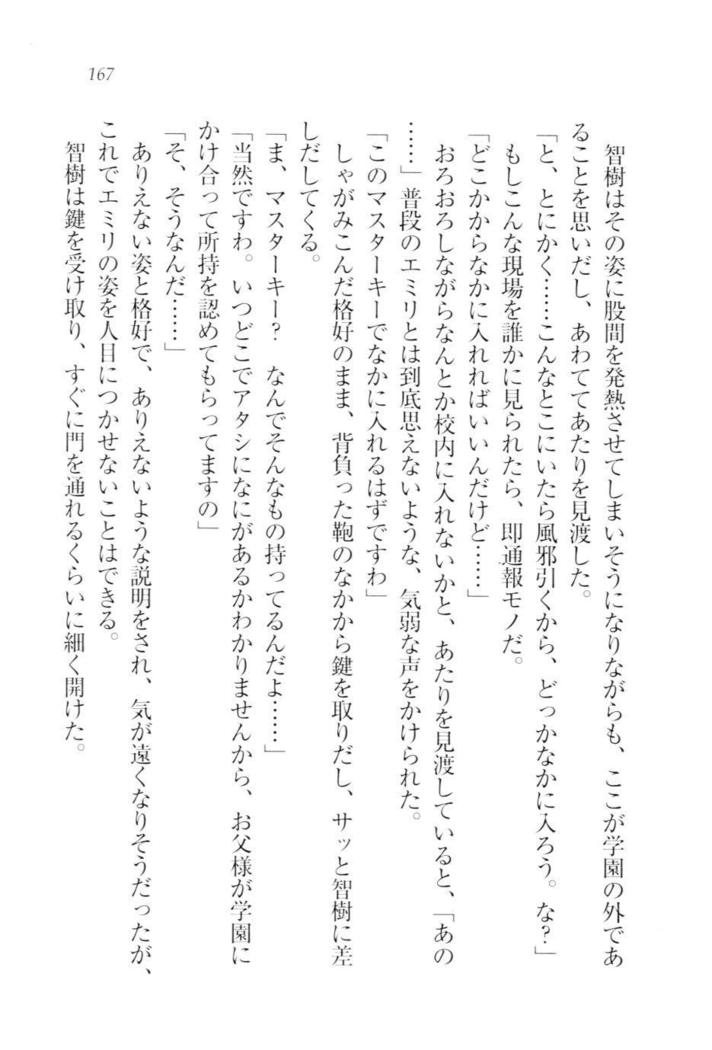 167
智樹はその姿に股間を発熱させてしまいそうになりながらも、ここが学園の外であ
ることを思いだし、あわててあたりを見渡した。
「と、とにかく……こんなとこにいたら風邪引くから、どっかなかに入ろう。な?」
もしこんな現場を誰かに見られたら、即通報モノだ。
「どこかからなかに入れればいいんだけど……」
おろおろしながらなんとか校内に入れないかと、あたりを見渡していると、「あの
……」普段のエミリとは到底思えないような、気弱な声をかけられた。
「このマスターキーでなかに入れるはずですわ」
しゃがみこんだ格好のまま、背負った鞄のなかから鍵を取りだし、サッと智樹に差
しだしてくる。
「ま、マスターキー? なんでそんなもの持ってるんだよ……」
「当然ですわ。いつどこでアタシになにがあるかわかりませんから、お父様が学園に
かけ合って所持を認めてもらってますの」
「そ、そうなんだ……」
ありえない姿と格好で、ありえないような説明をされ、気が遠くなりそうだったが、
これでエミリの姿を人目につかせないことはできる。
智樹は鍵を受け取り、すぐに門を通れるくらいに細く開けた。